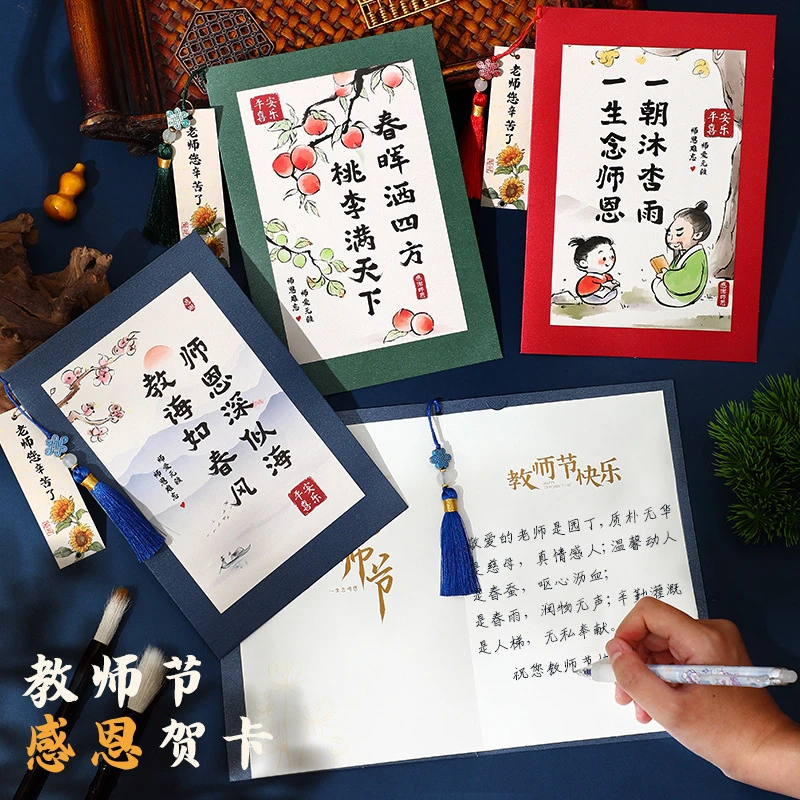 老师您辛苦了
平安
喜乐
春晖洒四方
桃李满天下
师爱无疆
师恩难忘
老师您辛苦了
一朝沐杏雨
一生念师恩
平安
喜乐
师爱无疆
师恩难忘
感谢师恩
老师您辛苦了
师恩深似海
教诲如春风
师爱无疆
师恩难忘
平安
喜乐
师节
教师节快乐
敬爱的老师是园丁，质朴无华
是慈母，真情感人；温馨动人
是春蚕，呕心沥血；
是春雨，润物无声；辛勤灌溉
是人梯，无私奉献。
祝您教师节
教师节
感恩贺卡